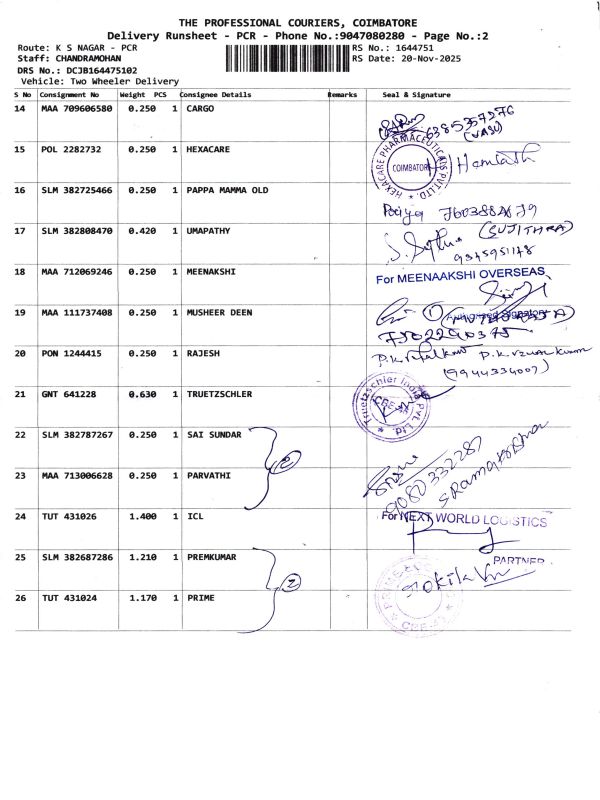 THE PROFESSIONAL COURIERS, COIMBATORE
Delivery Runsheet - PCR - Phone No.:9047080280 - Page No.:2
Route: K S NAGAR - PCR RS No.: 1644751
Staff: CHANDRAMOHAN RS Date: 20-Nov-2025
DRS No.: DCJB164475102
Vehicle: Two Wheeler Delivery
S No Consignment No Weight PCS Consignee Details Remarks Seal & Signature
14 MAA 709606580 0.250 1 CARGO
6385357276
(VASU)
15 POL 2282732 0.250 1 HEXACARE
HEXACARE PHARMACEUTICALS PVT. LTD. COIMBATORE
16 SLM 382725466 0.250 1 PAPPA MAMMA OLD
17 SLM 382808470 0.420 1 UMAPATHY
(SUJITHRA)
18 MAA 712069246 0.250 1 MEENAKSHI
For MEENAAKSHI OVERSEAS
19 MAA 111737408 0.250 1 MUSHEER DEEN
Authorised Signatory
20 PON 1244415 0.250 1 RAJESH
(9944334007)
21 GNT 641228 0.630 1 TRUETZSCHLER
Truetzschler India Pvt. Ltd
22 SLM 382787267 0.250 1 SAI SUNDAR
2
9080332287
23 MAA 713006628 0.250 1 PARVATHI
24 TUT 431026 1.400 1 ICL
For NEXT WORLD LOGISTICS
PARTNER
25 SLM 382687286 1.210 1 PREMKUMAR
2
26 TUT 431024 1.170 1 PRIME